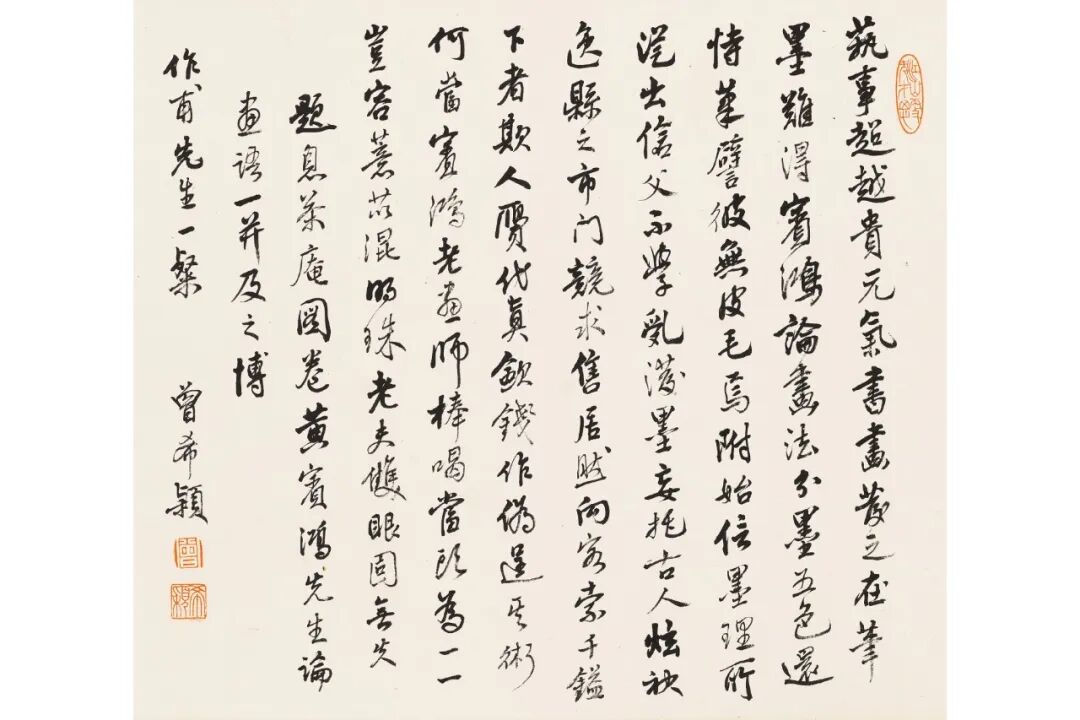 蓺事超越貴元氣書畫發之在筆
墨難得賓鴻論畫法分墨五色還
恃筆譬彼無皮毛焉附始信墨理所
從出信父不學亂潑墨妄托古人炫袂
縣之市門競求售居然向客索千鎰
下者欺人贋代真欹鍥作僞逞其術
何當賓鴻老畫師棒喝當頭為一一
豈容薏苡混明珠老夫雙眼固無失
題息茶庵圖卷黃賓鴻先生論
畫語一并及之博
作甫先生一粲 曾希穎